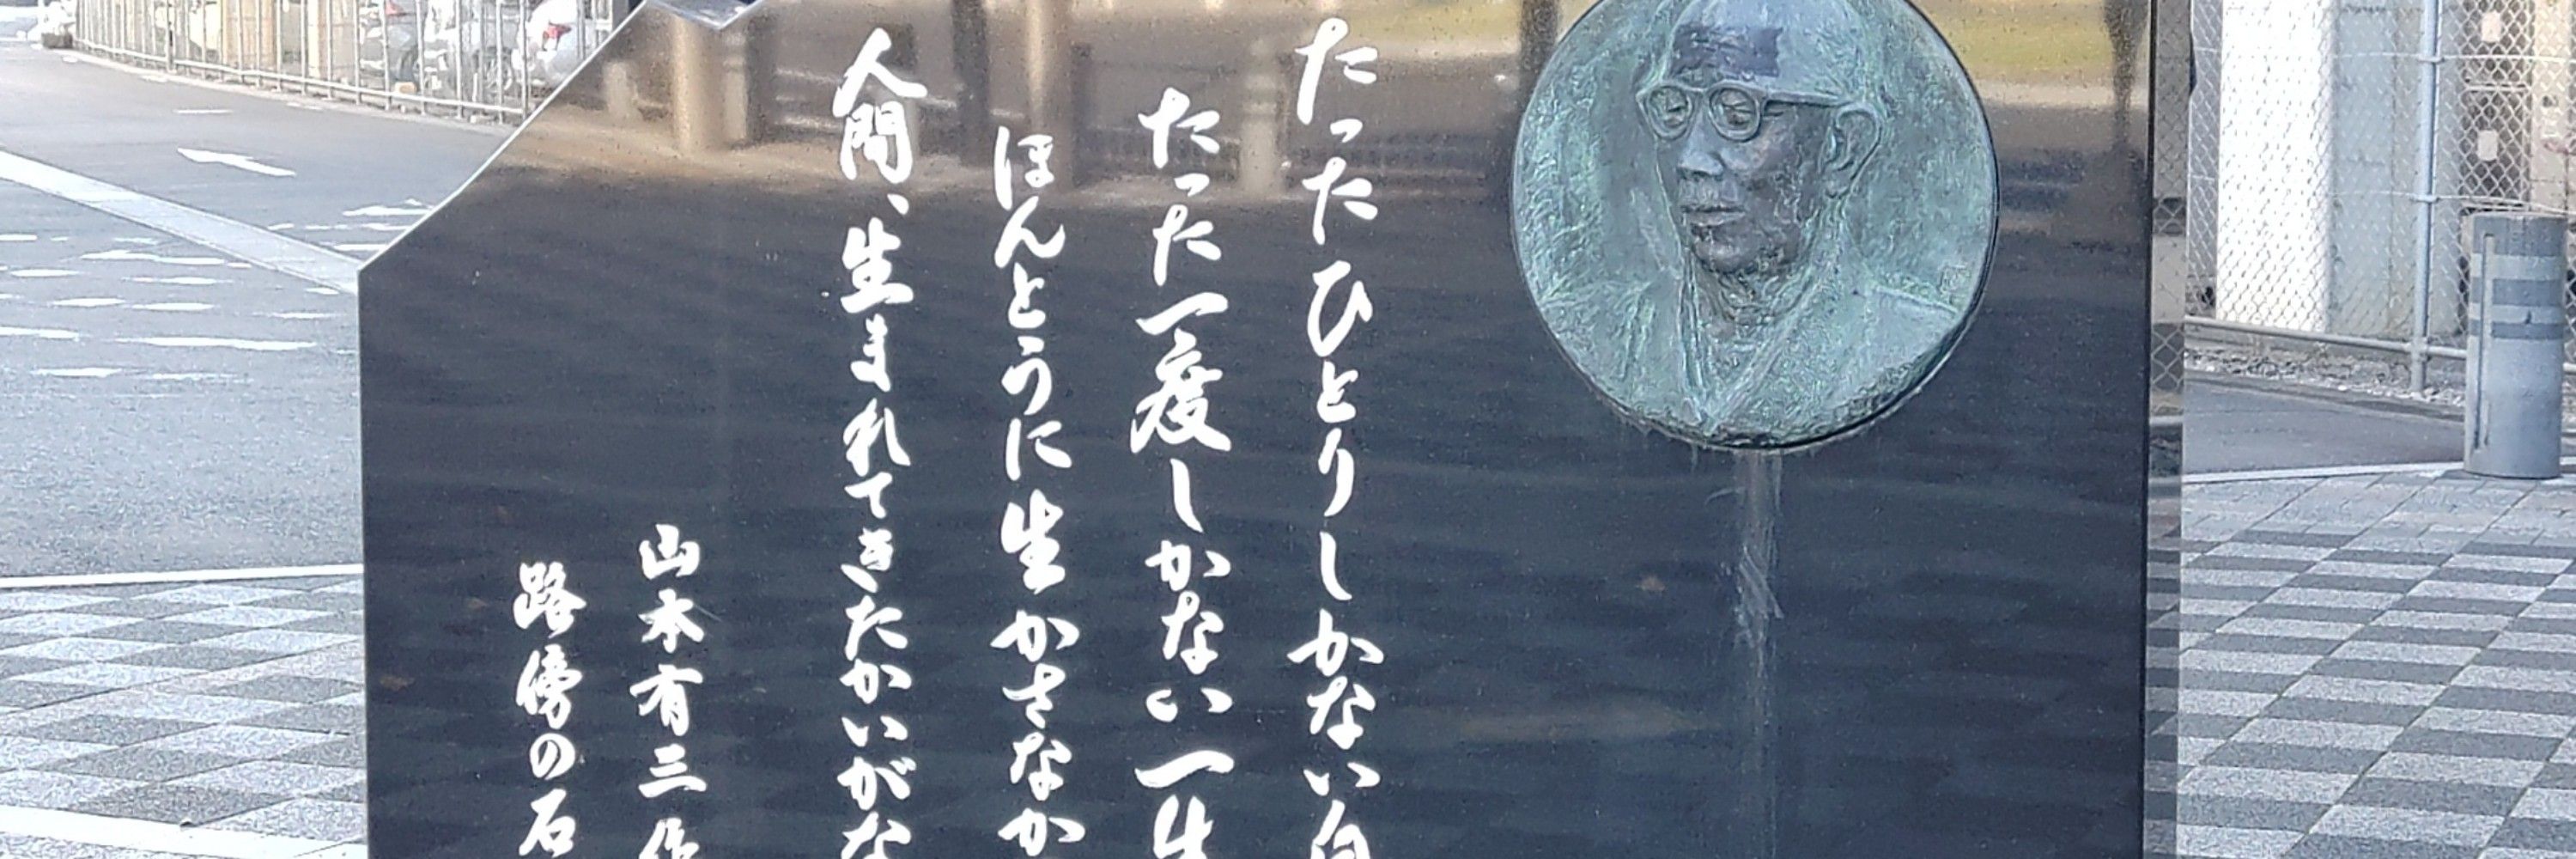 たったひとりしかない自
たった一度しかない一生
ほんとうに生かさなか
人間、生まれてきたかいがな
山本有三作
路傍の石